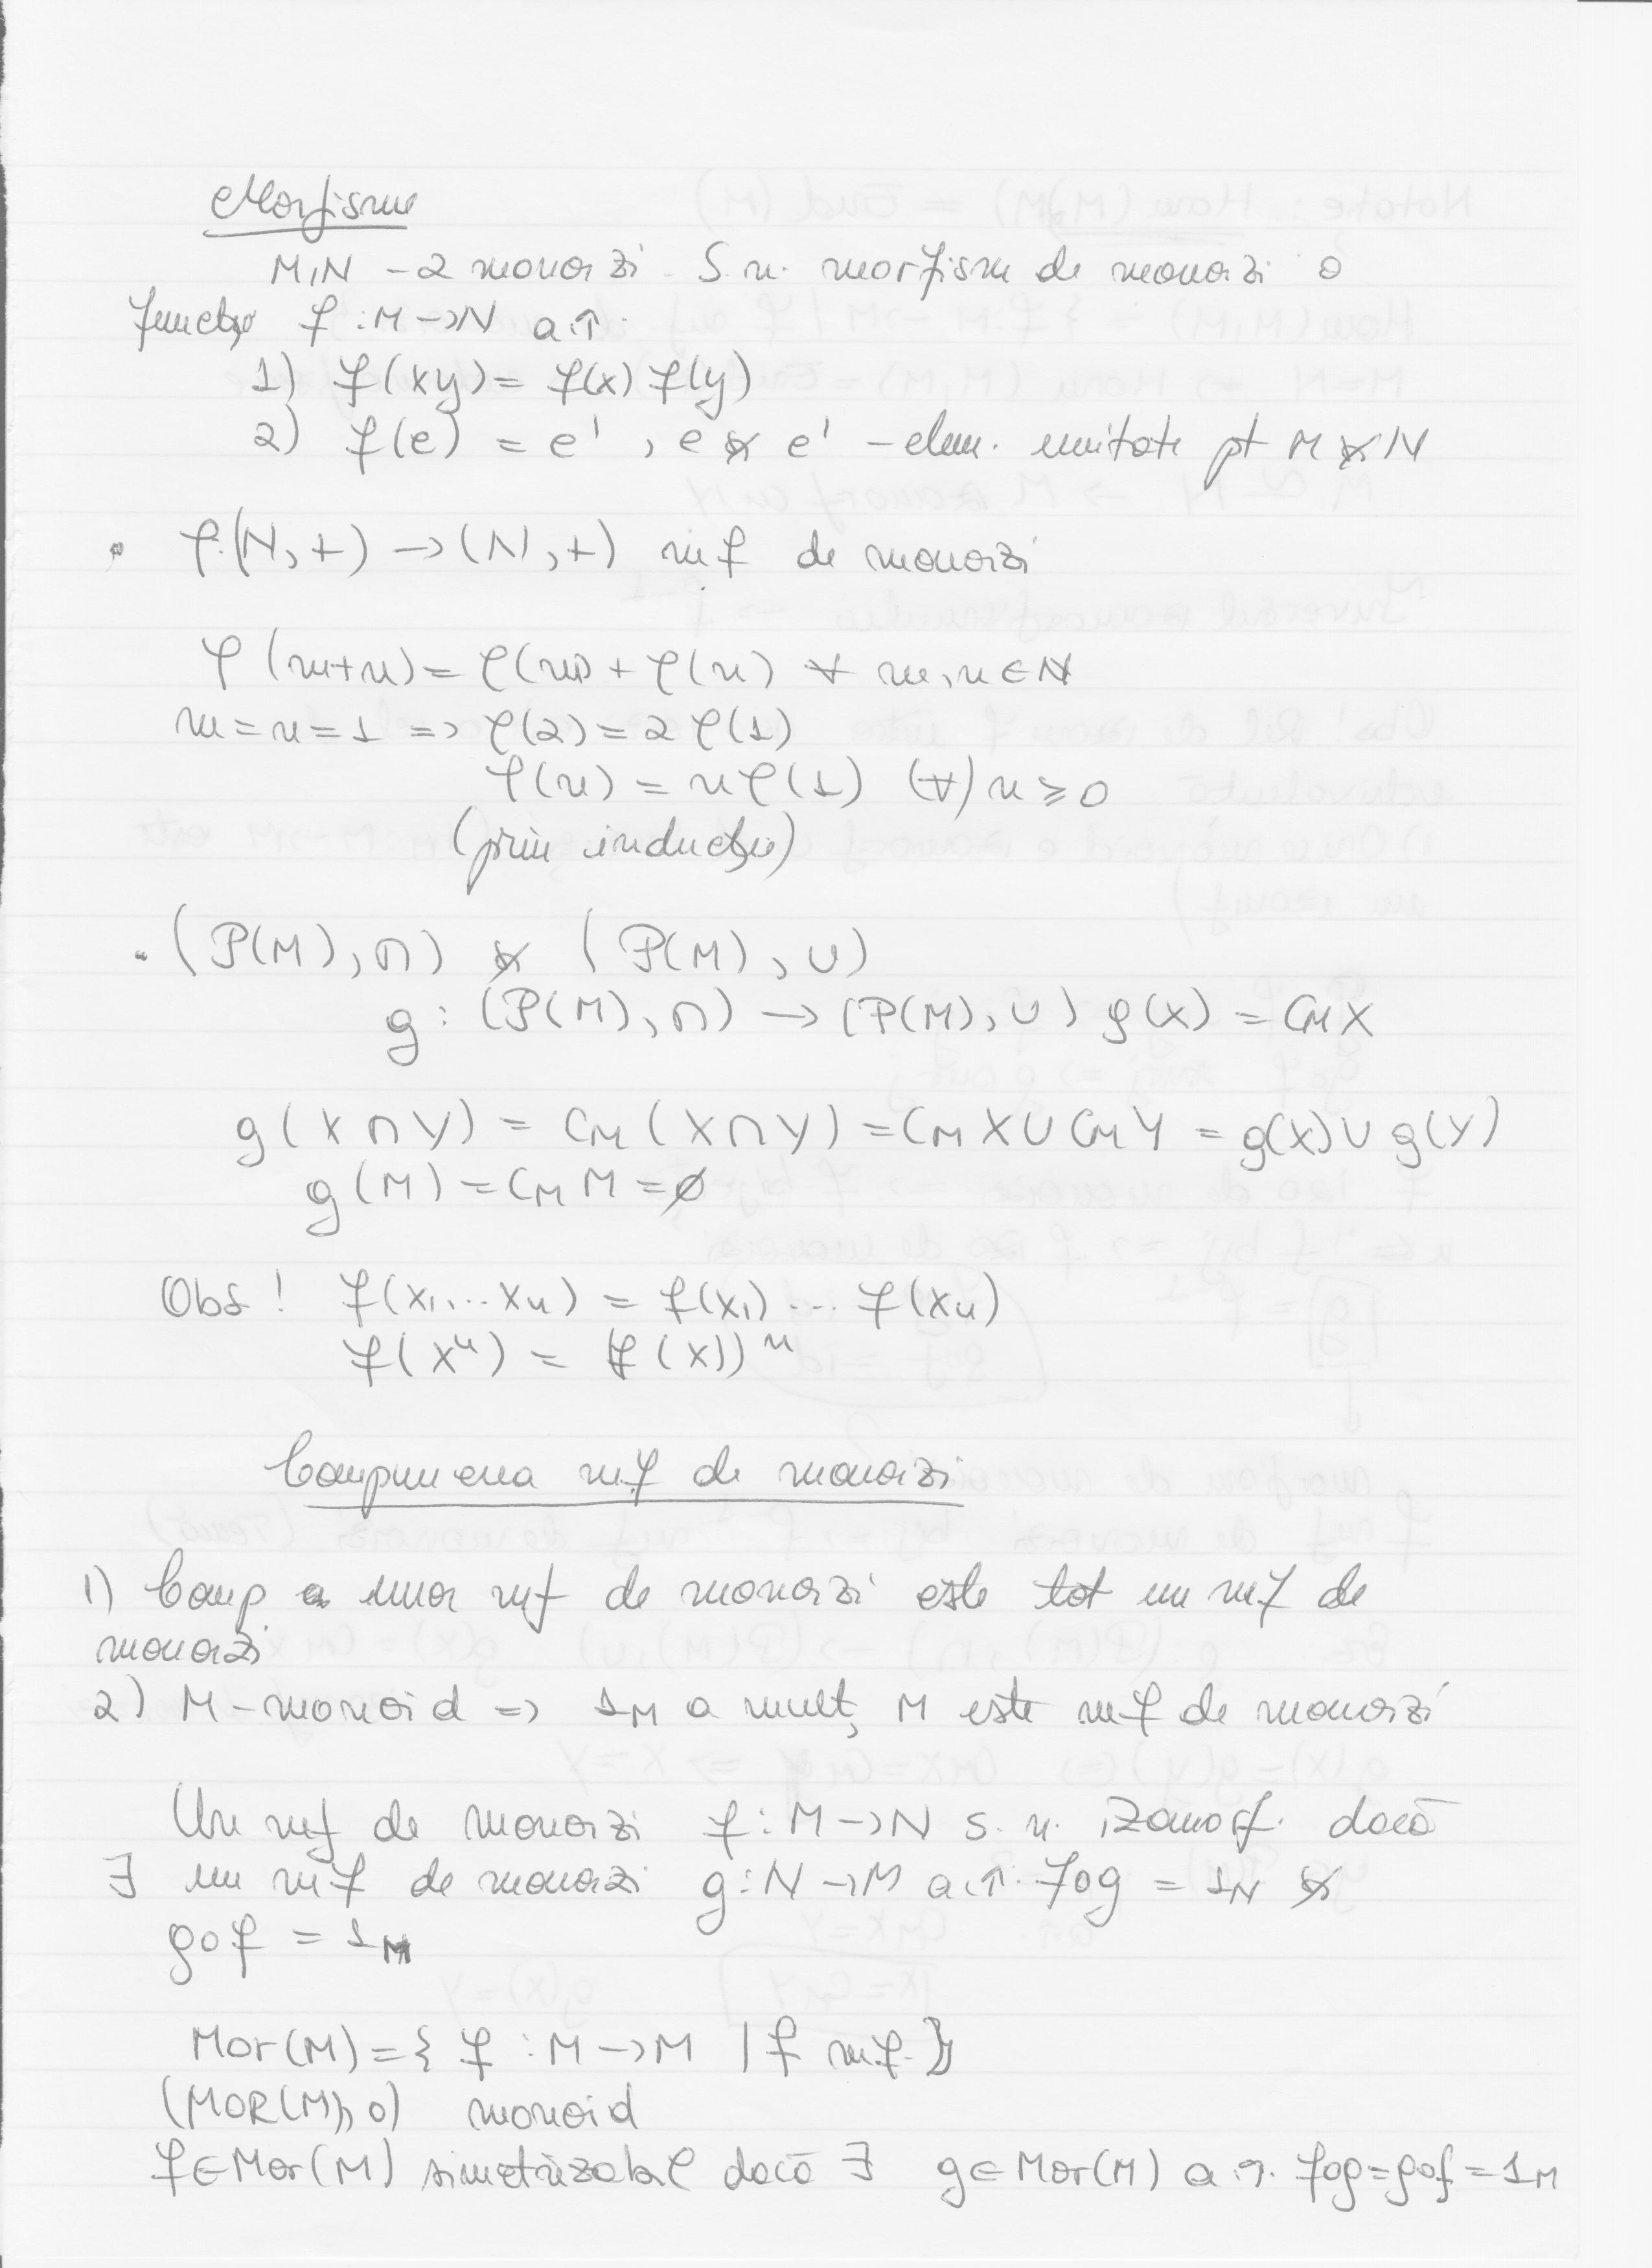 Morfisme
M,N - 2 monoizi. S.n. morfism de monoizi o
funcție f : M → N a.î.
1) f(xy) = f(x) f(y)
2) f(e) = e' , e & e' - elem. unitate pt M & N
• f:(N,+) → (N,+) mf de monoizi
φ(m+n) = φ(m) + φ(n) ∀ m,n ∈ N
m = n = 1 => φ(2) = 2φ(1)
φ(n) = nφ(1) (∀) n ⩾ 0
(prin inducție)
• (P(M), ∩) & (P(M), ∪)
g : (P(M), ∩) → (P(M), ∪) g(X) = C_M X
g(X ∩ Y) = C_M (X ∩ Y) = C_M X ∪ C_M Y = g(X) ∪ g(Y)
g(M) = C_M M = ∅
Obs! f(x₁...xₙ) = f(x₁) ... f(xₙ)
f(xⁿ) = (f(x))ⁿ
Compunerea mf de monoizi
1) Comp a unor mf de monoizi este tot un mf de
monoizi
2) M - monoid => 1_M a mulț M este mf de monoizi
Un mf de monoizi f : M → N s.n. izomorf. dacă
∃ un mf de monoizi g : N → M a.î. f∘g = 1_N &
g∘f = 1_M
Mor(M) = { f : M → M | f mf. }
(MOR(M), ∘) monoid
f ∈ Mor(M) simetrizabil dacă ∃ g ∈ Mor(M) a.î. f∘g = g∘f = 1_M